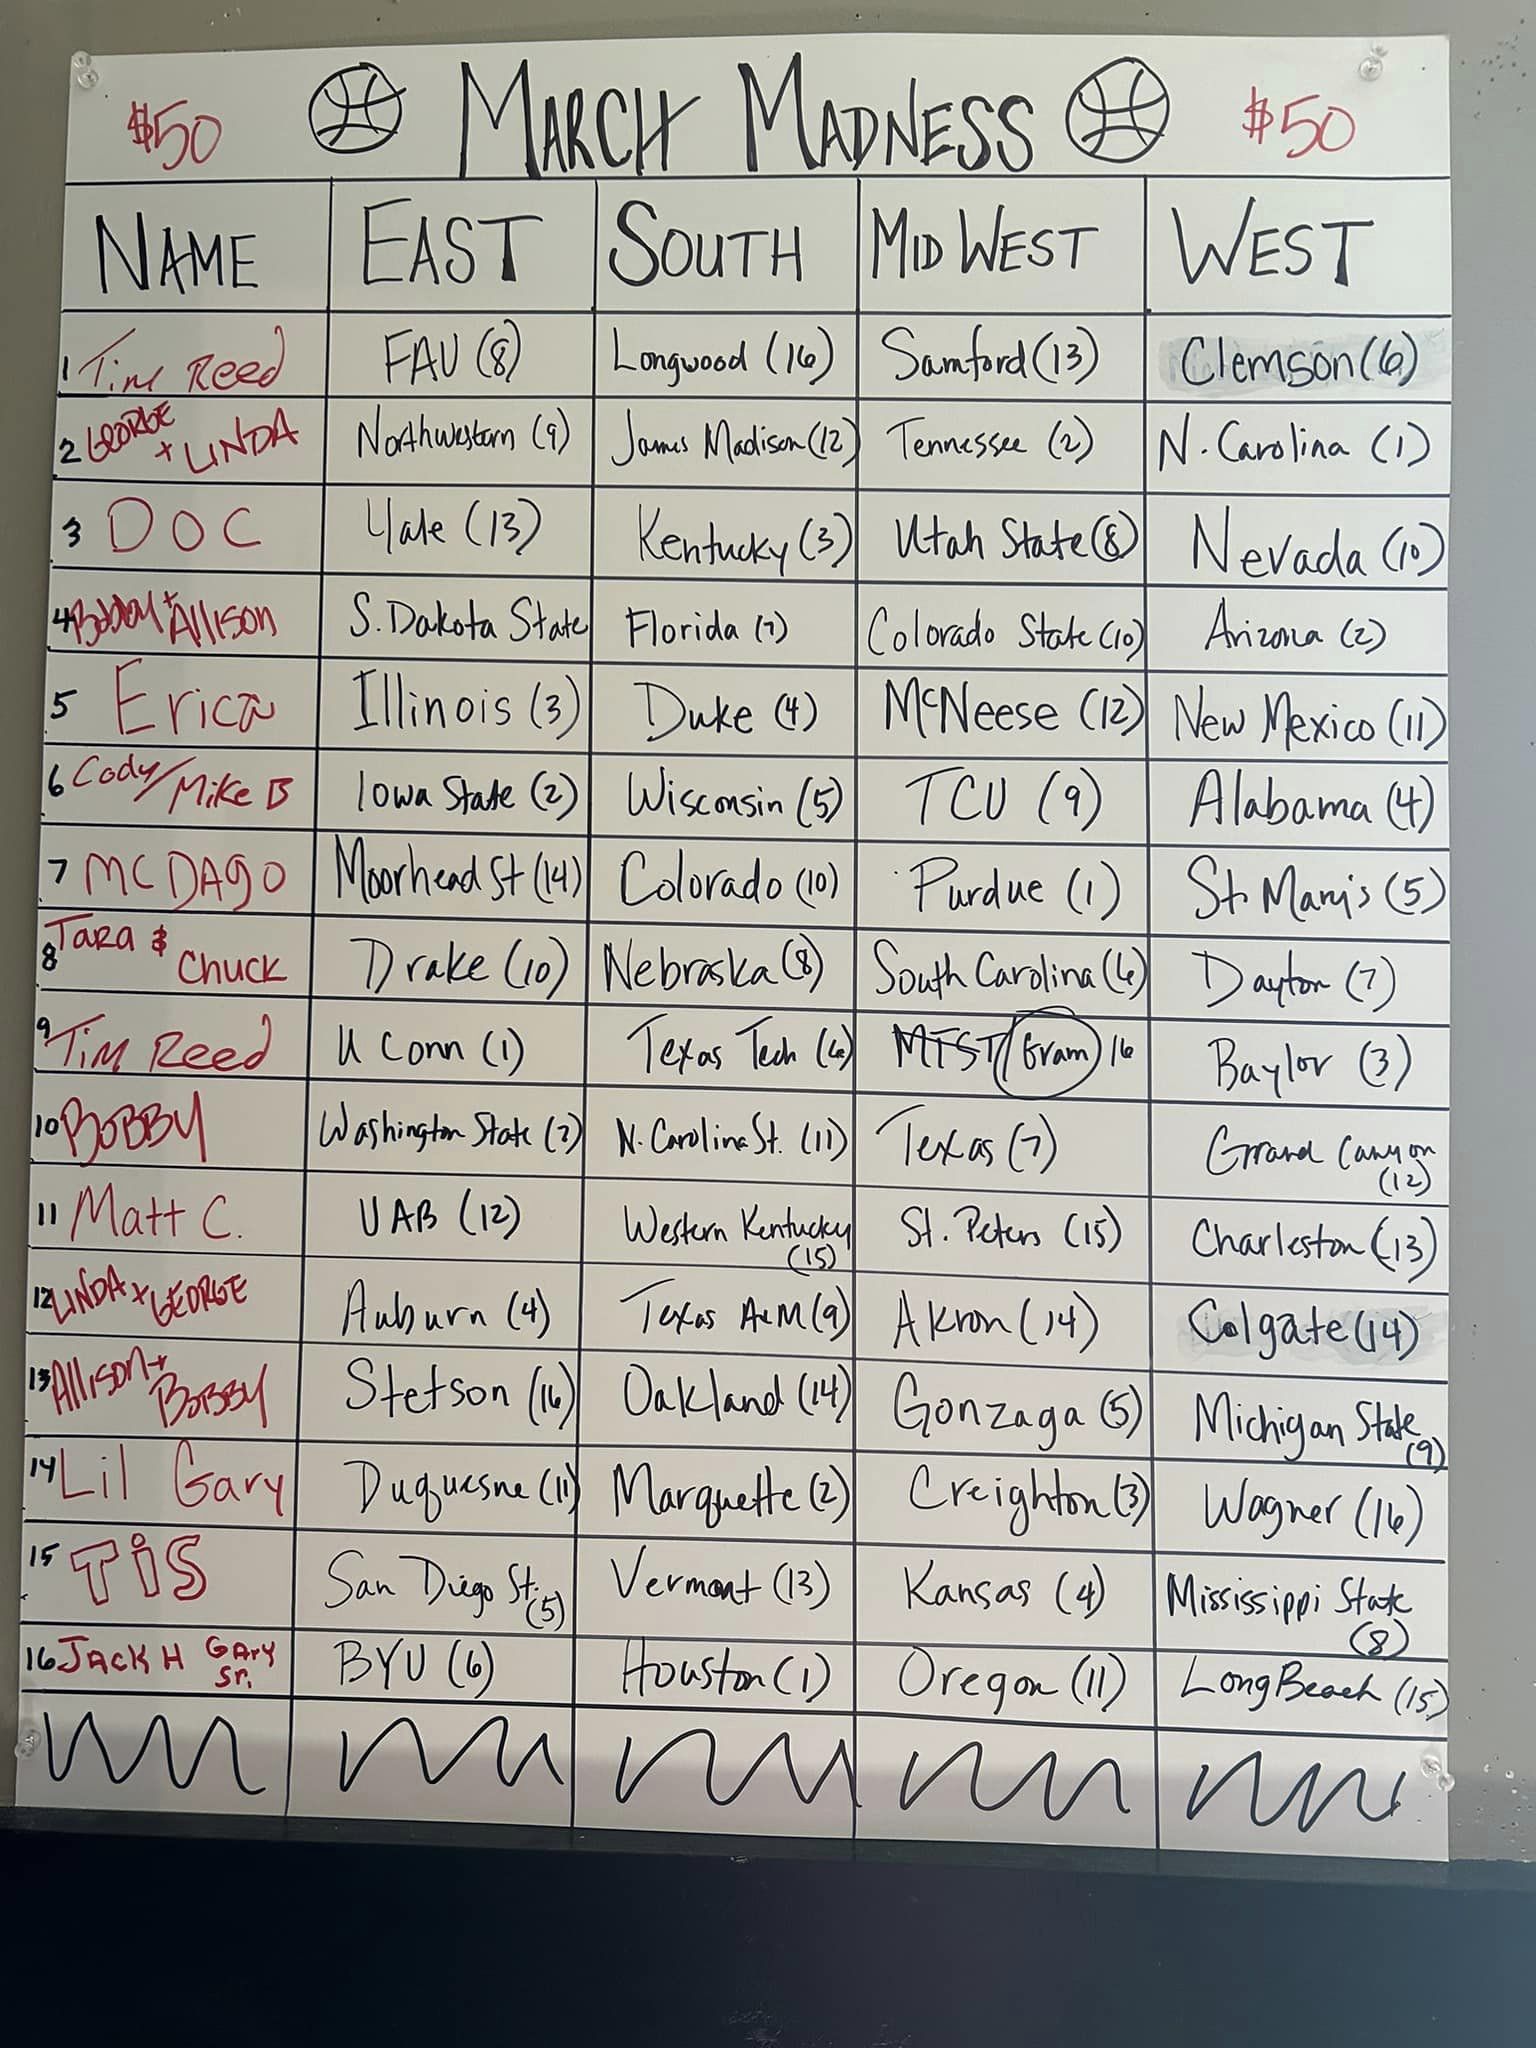 $50 MARCH MADNESS $50
NAME EAST SOUTH MIDWEST WEST
1 Tim Reed FAU (8) Longwood (16) Samford (13) Clemson (6)
2 GEORGE + LINDA Northwestern (9) James Madison (12) Tennessee (2) N. Carolina (1)
3 DOC Yale (13) Kentucky (3) Utah State (8) Nevada (10)
4 Bobby + Allison S. Dakota State Florida (7) Colorado State (10) Arizona (2)
5 Erica Illinois (3) Duke (4) McNeese (12) New Mexico (11)
6 Cody/Mike B Iowa State (2) Wisconsin (5) TCU (9) Alabama (4)
7 MC DAGO Moorhead St (14) Colorado (10) Purdue (1) St. Mary's (5)
8 Tara & Chuck Drake (10) Nebraska (8) South Carolina (6) Dayton (7)
9 Tim Reed U Conn (1) Texas Tech (6) MTST/Gram 16 Baylor (3)
10 BOBBY Washington State (7) N. Carolina St. (11) Texas (7) Grand Canyon
(12)
11 Matt C. UAB (12) Western Kentucky St. Peters (15) Charleston (13)
(15)
12 LINDA + GEORGE Auburn (4) Texas A&M (9) Akron (14) Colgate (14)
13 Allison + BOBBY Stetson (16) Oakland (14) Gonzaga (5) Michigan State
(9)
14 Lil Gary Duquesne (11) Marquette (2) Creighton (3) Wagner (16)
15 TiS San Diego St. Vermont (13) Kansas (4) Mississippi State
(5) (8)
16 JACK H GARY Sr. BYU (6) Houston (1) Oregon (11) Long Beach (15)